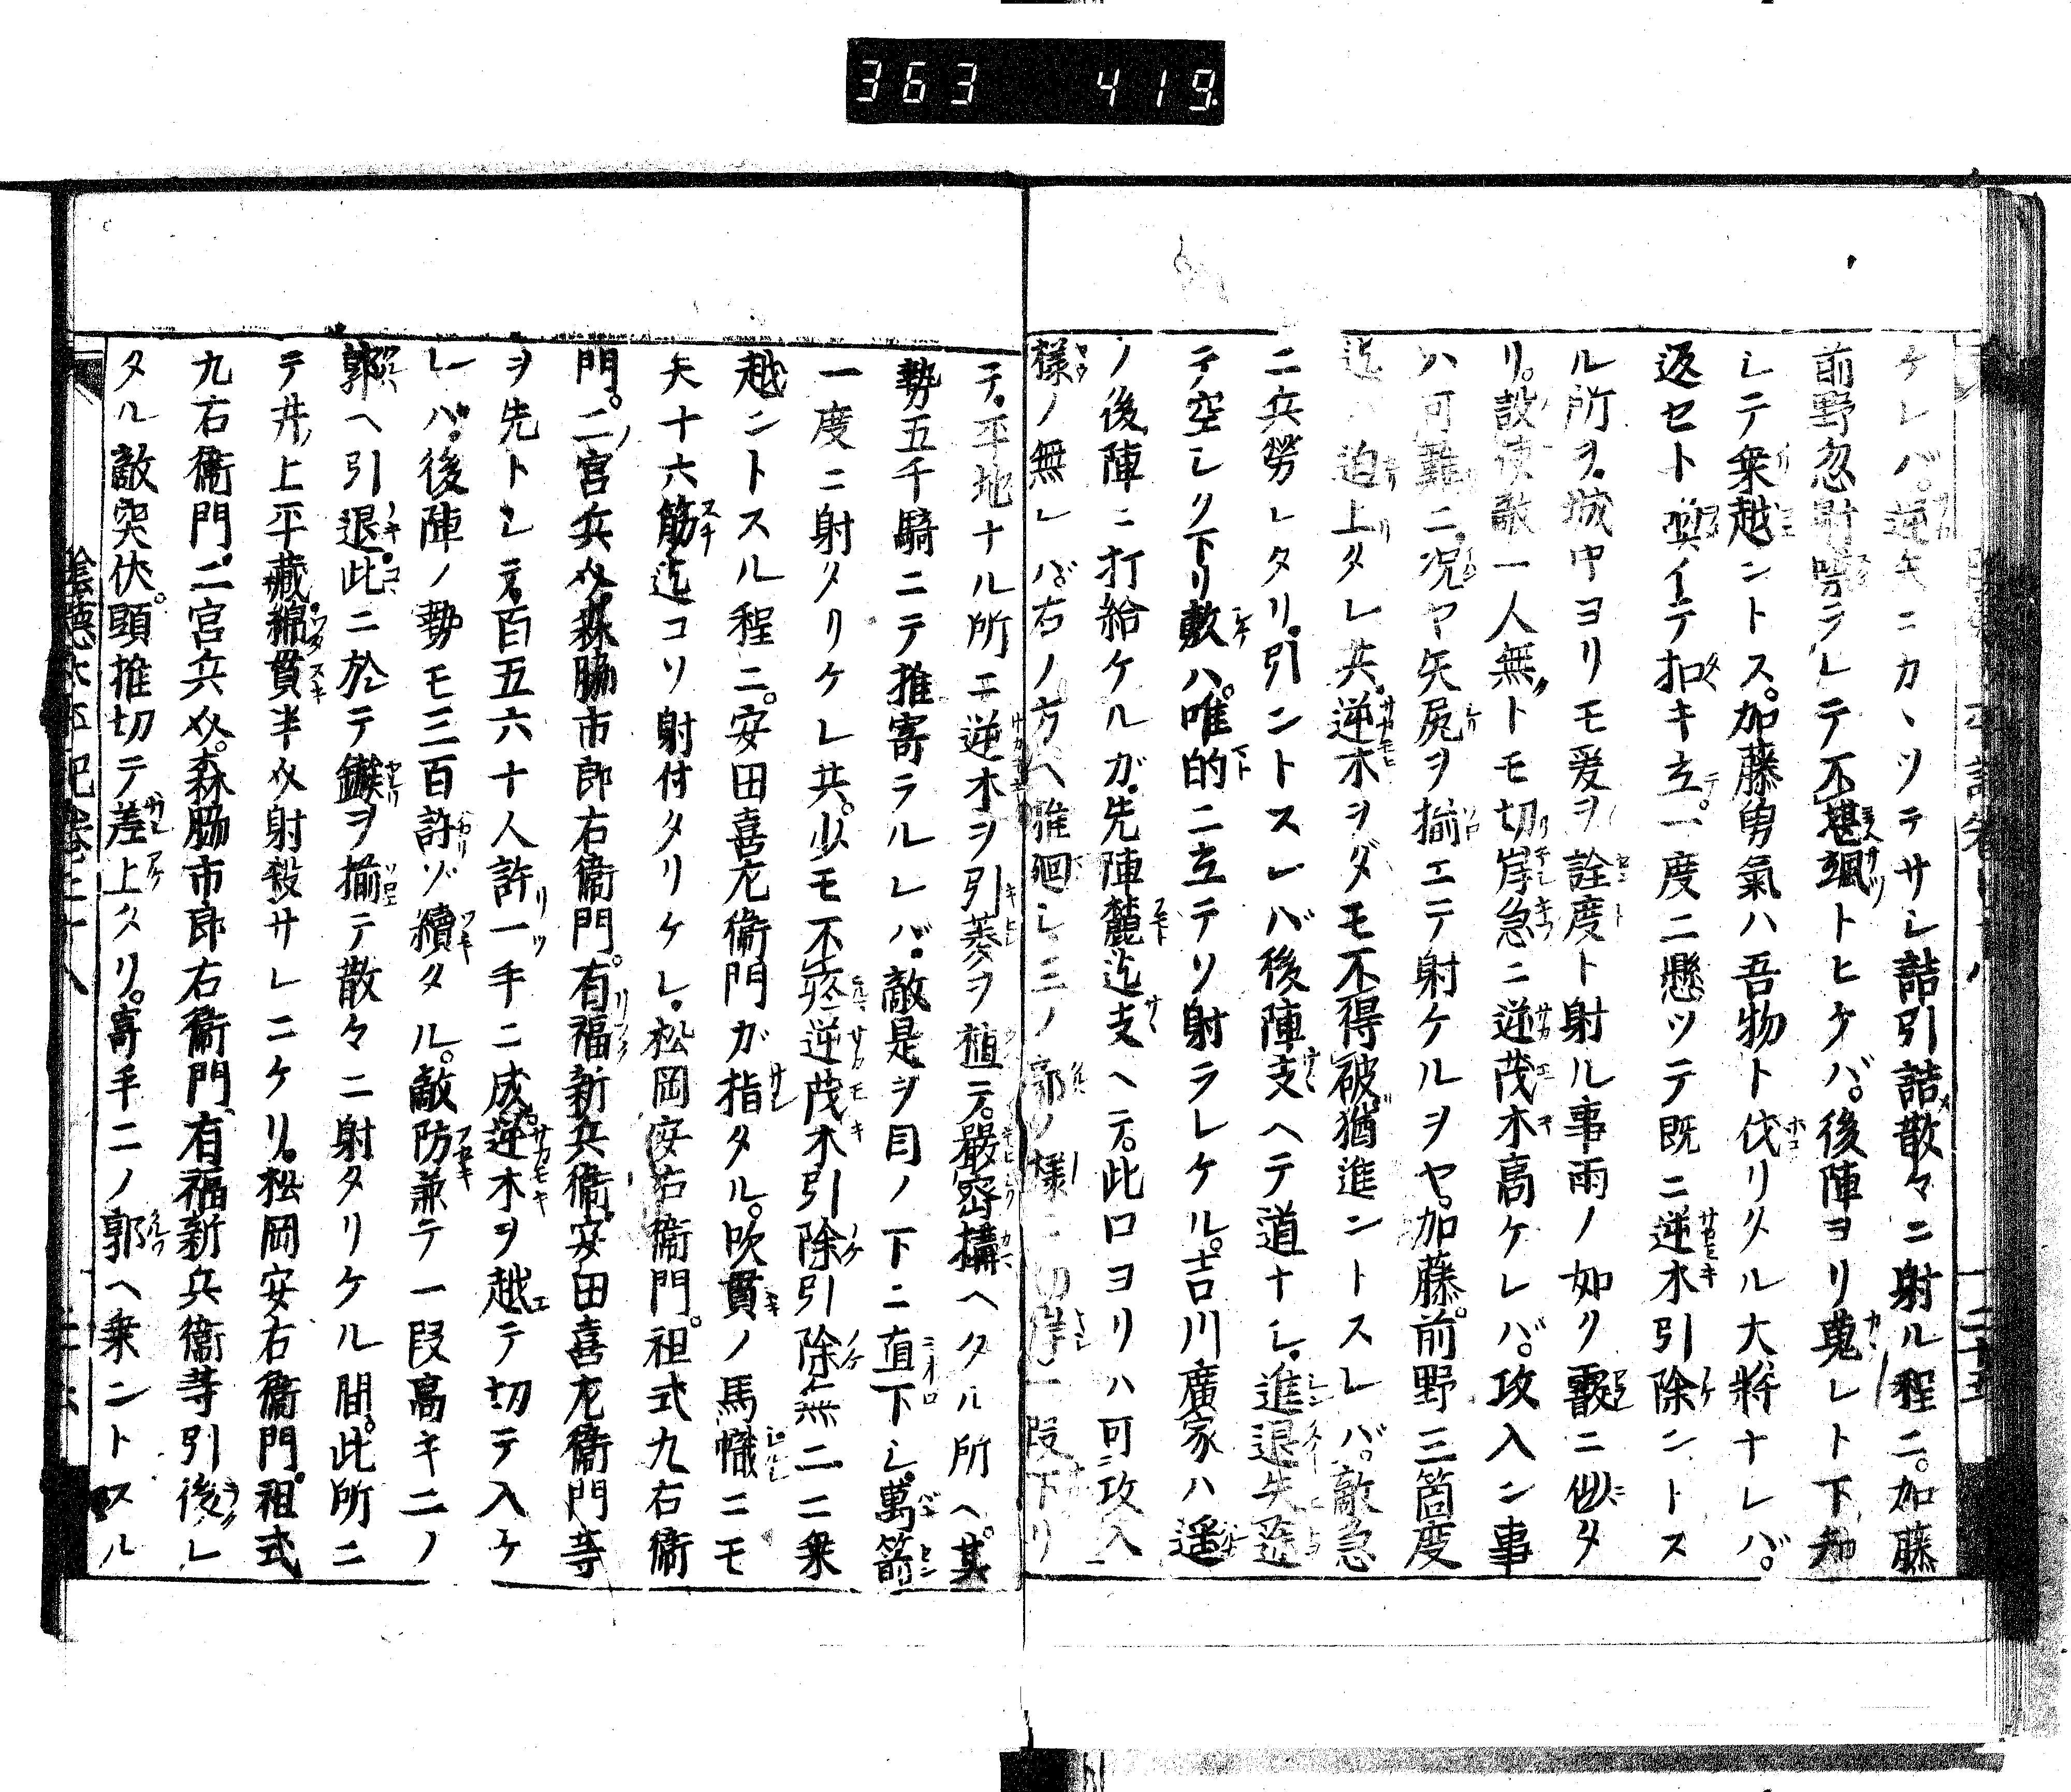 363 419
ケレバ。逆矢ニカヽツテサシ詰引詰散々ニ射ル程ニ。加藤
前野忽射ラレテ不堪颯トヒケバ。後陣ヨリ蒐レト下知
シテ乗越ントス。加藤勇氣ハ吾物ト伐リタル大將ナレバ。
返セト喚イテ扣キ立。一度ニ懸ツテ既ニ逆木引除ントス
ル所ヲ。城中ヨリモ爰ヲ詮度ト射ル事雨ノ如ク霰ニ似タ
リ。設使敵一人無トモ切岸急ニ逆茂木高ケレバ。攻入ン事
ハ可難ニ。况ヤ矢尻ヲ揃エテ射ケルヲヤ。加藤。前野三箇度
迄ハ迫上タレ共。逆木ヲダモ不得破。猶進ントスレバ。敵急
ニ兵勞レタリ。引ントスレバ後陣支ヘテ道ナシ。進退失途
テ空シク下リ敷ハ。唯的ニ立テソ射ラレケル。吉川廣家ハ遥
ノ後陣ニ打給ケルガ。先陣麓迄支ヘテ。此口ヨリハ可攻入
樣ノ無レバ。右ノ方ヘ推廻シ三ノ郭ノ樣ニ切岸一段下リ
テ。平地ナル所エ逆木ヲ引菱ヲ植テ。嚴密構ヘタル所ヘ。其
勢五千騎ニテ推寄ラルレバ。敵是ヲ目ノ下ニ直下シ。萬箭
一度ニ射タリケレ共。少モ不疼逆茂木引除引除無二二乗
越ントスル程ニ。安田喜左衞門ガ指タル。吹貫ノ馬幟ニモ
矢十六筋迄コソ射付タリケレ。松岡安右衞門。祖式九右衞
門。二宮兵介。森脇市郎右衞門。有福新兵衞。安田喜左衞門等
ヲ先トシテ。百五六十人許一手ニ成。逆木ヲ越テ切テ入ケ
レバ。後陣ノ勢モ三百許ゾ續タル。敵防兼テ一段高キ二ノ
郭ヘ引退。此ニ於テ鏃ヲ揃テ散々ニ射タリケル間。此所ニ
テ井上平藏。綿貫半介射殺サレニケリ。松岡安右衞門。祖式
九右衞門。二宮兵介。森脇市郎右衞門。有福新兵衞等引後レ
タル敵突伏。頸推切テ差上タリ。寄手二ノ郭ヘ乗ントスル